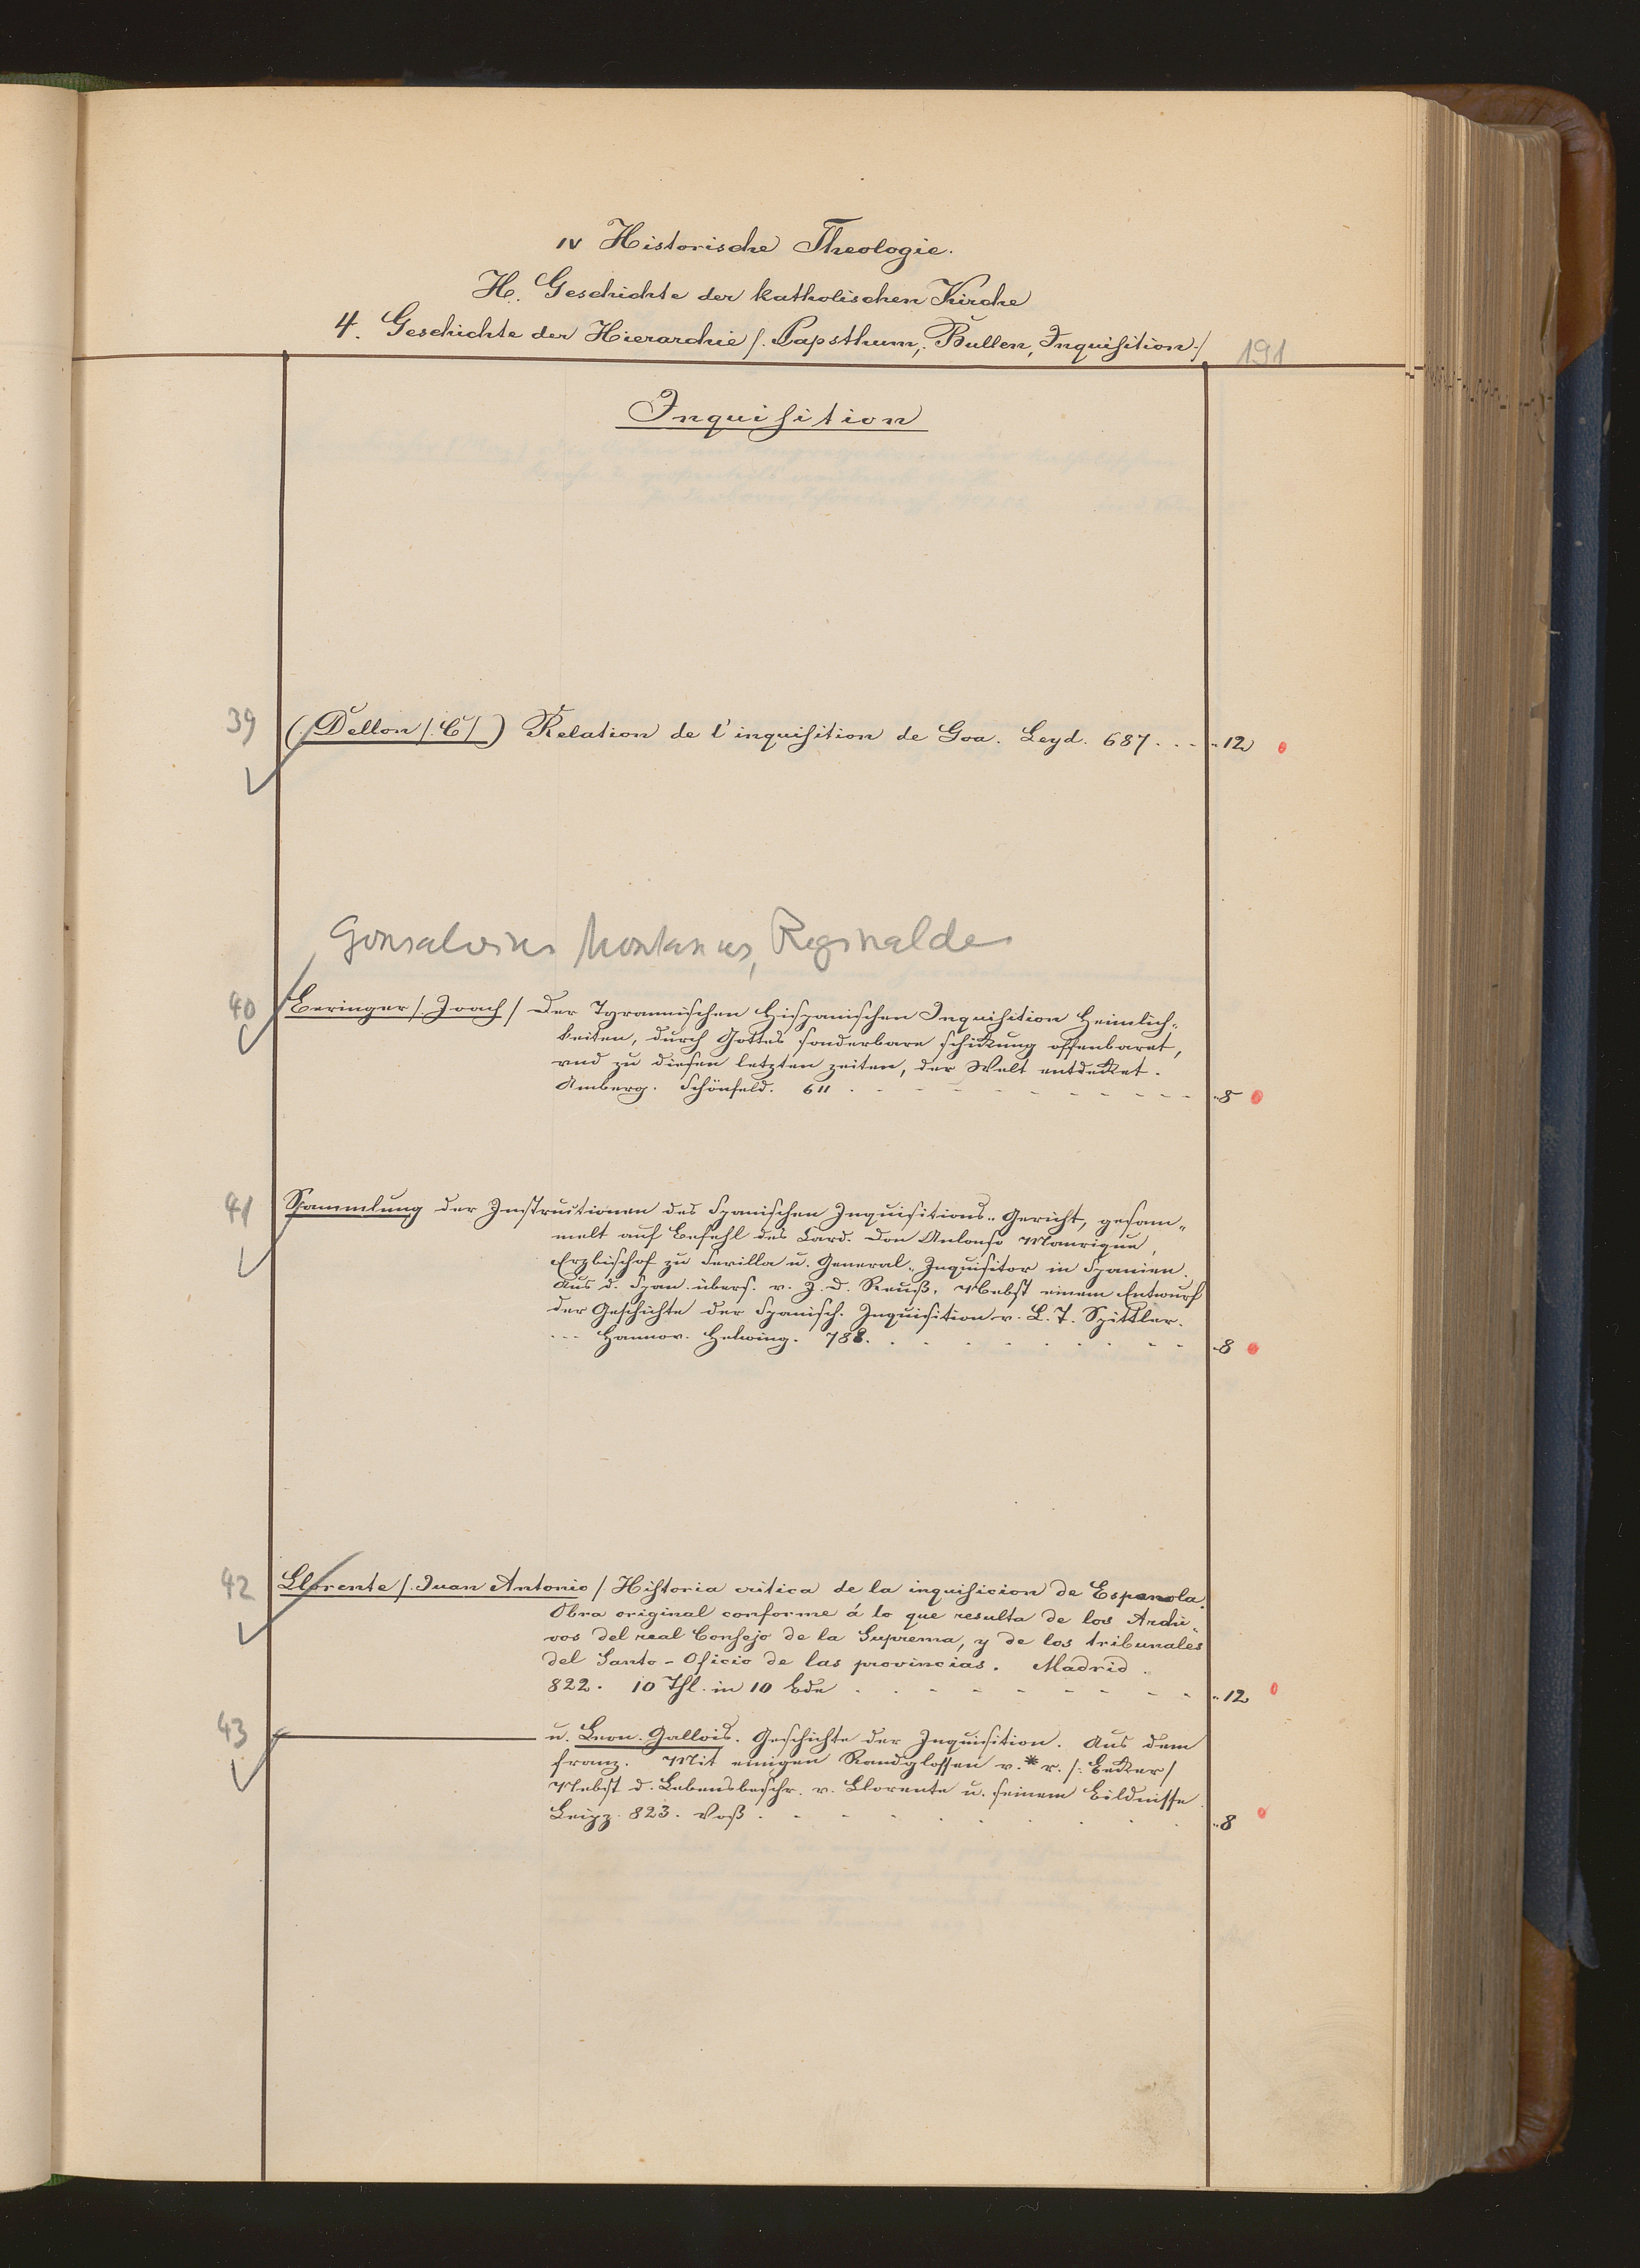 IV Historische Theologie.
H. Geschichte der katholischen Kirche
4. Geschichte der Hierarchie /. Papsthum, Bullen, Inquisition./
191
Inquisition
39 (Dellon /. C /) Relation de l'inquisition de Goa. Leyd. 687 . . . . 12
Gonsalvius Montanus, Reginaldus
40 Beringer /. Joach / Der Tyrannischen Hispanischen Inquisition Heimlich-
keiten, durch Gottes sonderbare schickung offenbaret,
vnd zu diesen letzten zeiten, der Welt entdecket.
Amberg. Schönfeld. 611 . - - - - - - - - 8
41 Sammlung der Instructionen des Spanischen Inquisitions-Gericht, gesam-
melt auf Befehl des Card. Don Anlonso Manrique,
Erzbischof zu Sevilla u. General-Inquisitor in Spanien.
Aus d. Span. übers. v. J. D. Reuß, Nebst einem Entwurf
der Geschichte der Spanisch. Inquisition v. L. T. Spittler.
--- Hannov. Helwing. 788. . . . . . . . 8
42 Llorente /. Juan Antonio / Historia critica de la inquisicion de Espanola.
Obra original conforme á lo que resulta de los Archi-
vos del real Consejo de la Suprema, y de los tribunales
del Santo-Oficio de las provincias. Madrid.
822. 10 Thl. in 10 Bde . . - - - - - - 12
43 ——— u. Leon. Gallois. Geschichte der Inquisition. Aus dem
franz. Mit einigen Randglossen v. * r. /: Becker /
Nebst d. Lebensbeschr. v. Llorente u. seinem Bildnisse.
Leipz. 823. Voß . - - - . . . . 8